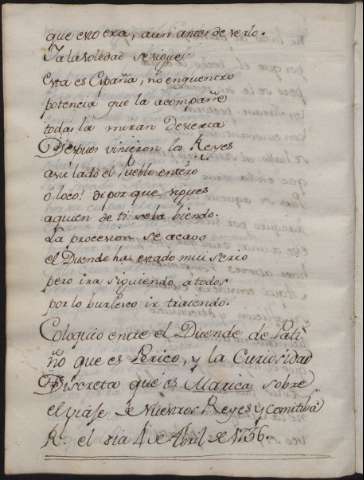 que esto era, aun antes de verlo.
Ya la soledad se sigue
esta es España, no encuentro
potencia que la acompañe
todas la miran de seria
Despues vinieron los Reyes
a su lado el Pueblo entero
o loco! di por que sigues
a quien de ti se ba biendo.
La procesion se acavo
el Duende ha estado mui serio
pero ira siguiendo a todos
por lo burlesco ir traiendo.
Coloquio entre el Duende de Pati
ño que es Perico, y la Curiosidad
Discreta que es Marica sobre
el viaje de Nuestros Reyes y comitiva
R. el dia 4 de Abril de 1736.